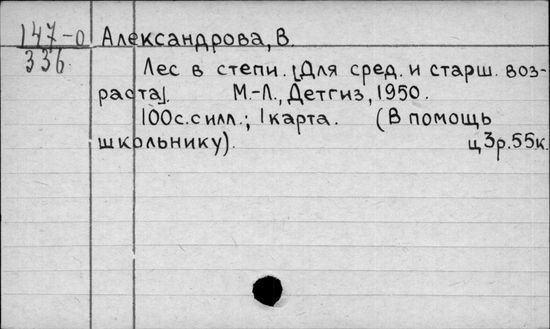 147-0 Александрова, В.
336
Лес в степи. [Для сред. и старш. воз-
раста]. М.-Л., Детгиз, 1950.
100с. с илл.; 1 карта. (В помощь
школьнику). ц 3р.55к.